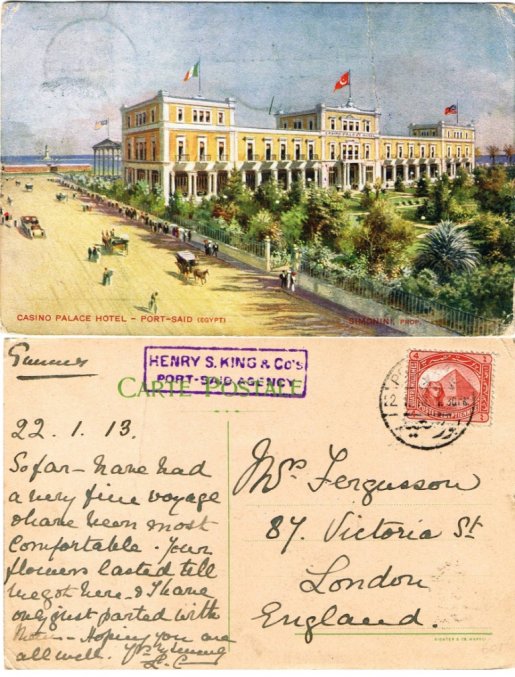 CASINO PALACE HOTEL - PORT-SAID (EGYPT)
SIMONINI, PROP.
HENRY S. KING & Co's
PORT-SAID AGENCY
CARTE POSTALE
22. 1. 13.
So far - have had
a very fine voyage
& have been most
Comfortable. Your
flowers lasted till
we got here. & I have
only just parted with
them - Hoping you are
all well.
Mrs Fergusson
87. Victoria St
London
England.
RICHTER & Co. NAPOLI